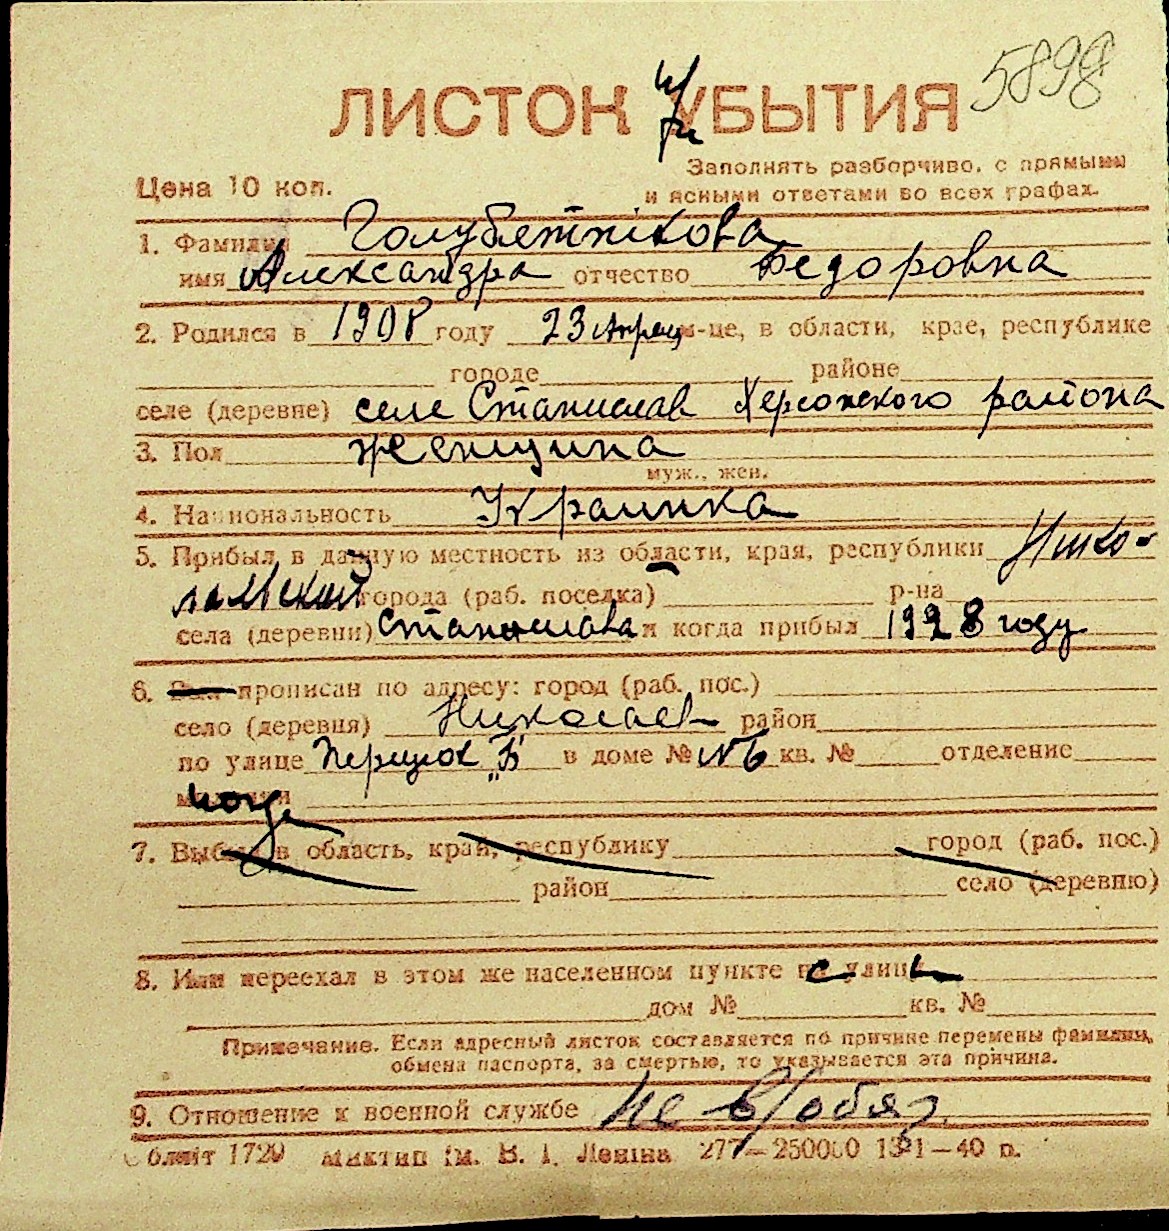 5898
ЛИСТОК УБЫТИЯ
При
Заполнять разборчиво, с прямыми
Цена 10 коп.
и ясными ответами во всех графах.
1. Фамилия Голубятнікова
имя Александра отчество Федоровна
2. Родился в 1908 году 23 апрел м-це, в области, крае, республике
городе районе
селе (деревне) селе Станислав Херсонского района
3. Пол женщина
муж., жен.
4. Национальность Украинка
5. Прибыл в данную местность из области, края, республики Нико-
лаевской города (раб. поселка) р-на
села (деревни) Станислава и когда прибыл 1928 году
6. Был прописан по адресу: город (раб. пос.)
село (деревня) Николаев район
по улице в доме № № 6 кв. № отделение
милиции
7. Выбыл в область, край, республику город (раб. пос.)
район село (деревню)
8. Или переехал в этом же населенном пункте на улицу
с
дом № кв. №
Примечание. Если адресный листок составляется по причине перемены фамилии,
обмена паспорта, за смертью, то указывается эта причина.
9. Отношение к военной службе не в/обяз
Обліт 1720 Миктип ім. В. І. Леніна 277—250000 1940 р.